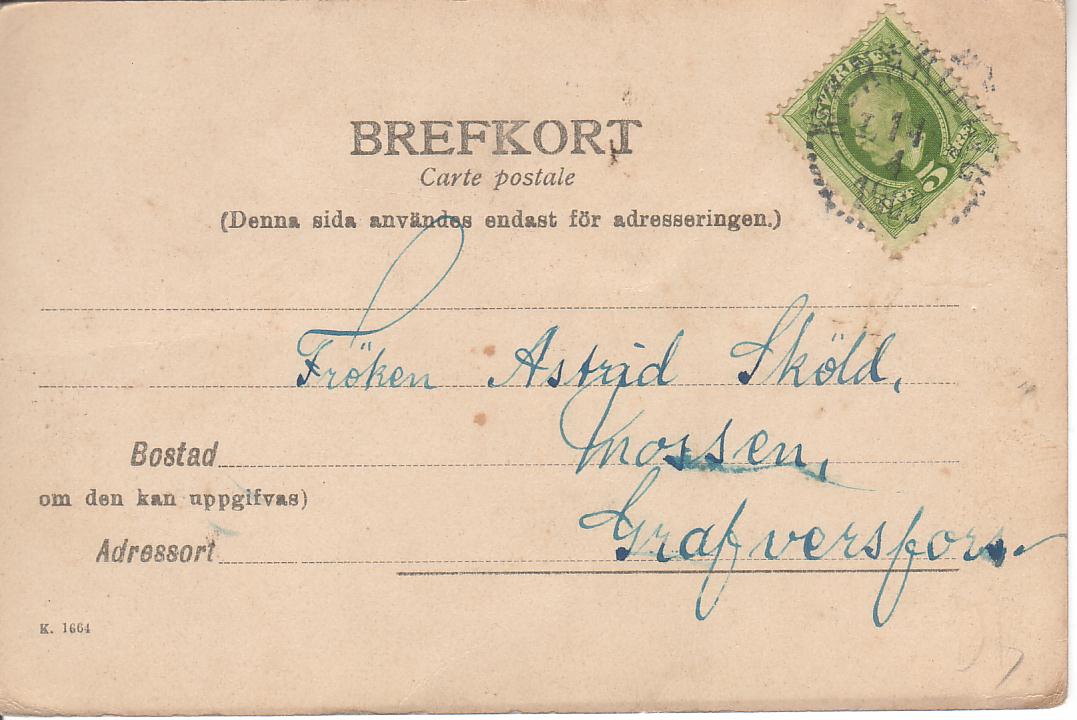 BREFKORT
Carte postale
(Denna sida användes endast för adresseringen.)
Fröken Astrid Sköld,
Bostad Mossen,
om den kan uppgifvas)
Adressort Grafversfors.
K. 1664
5